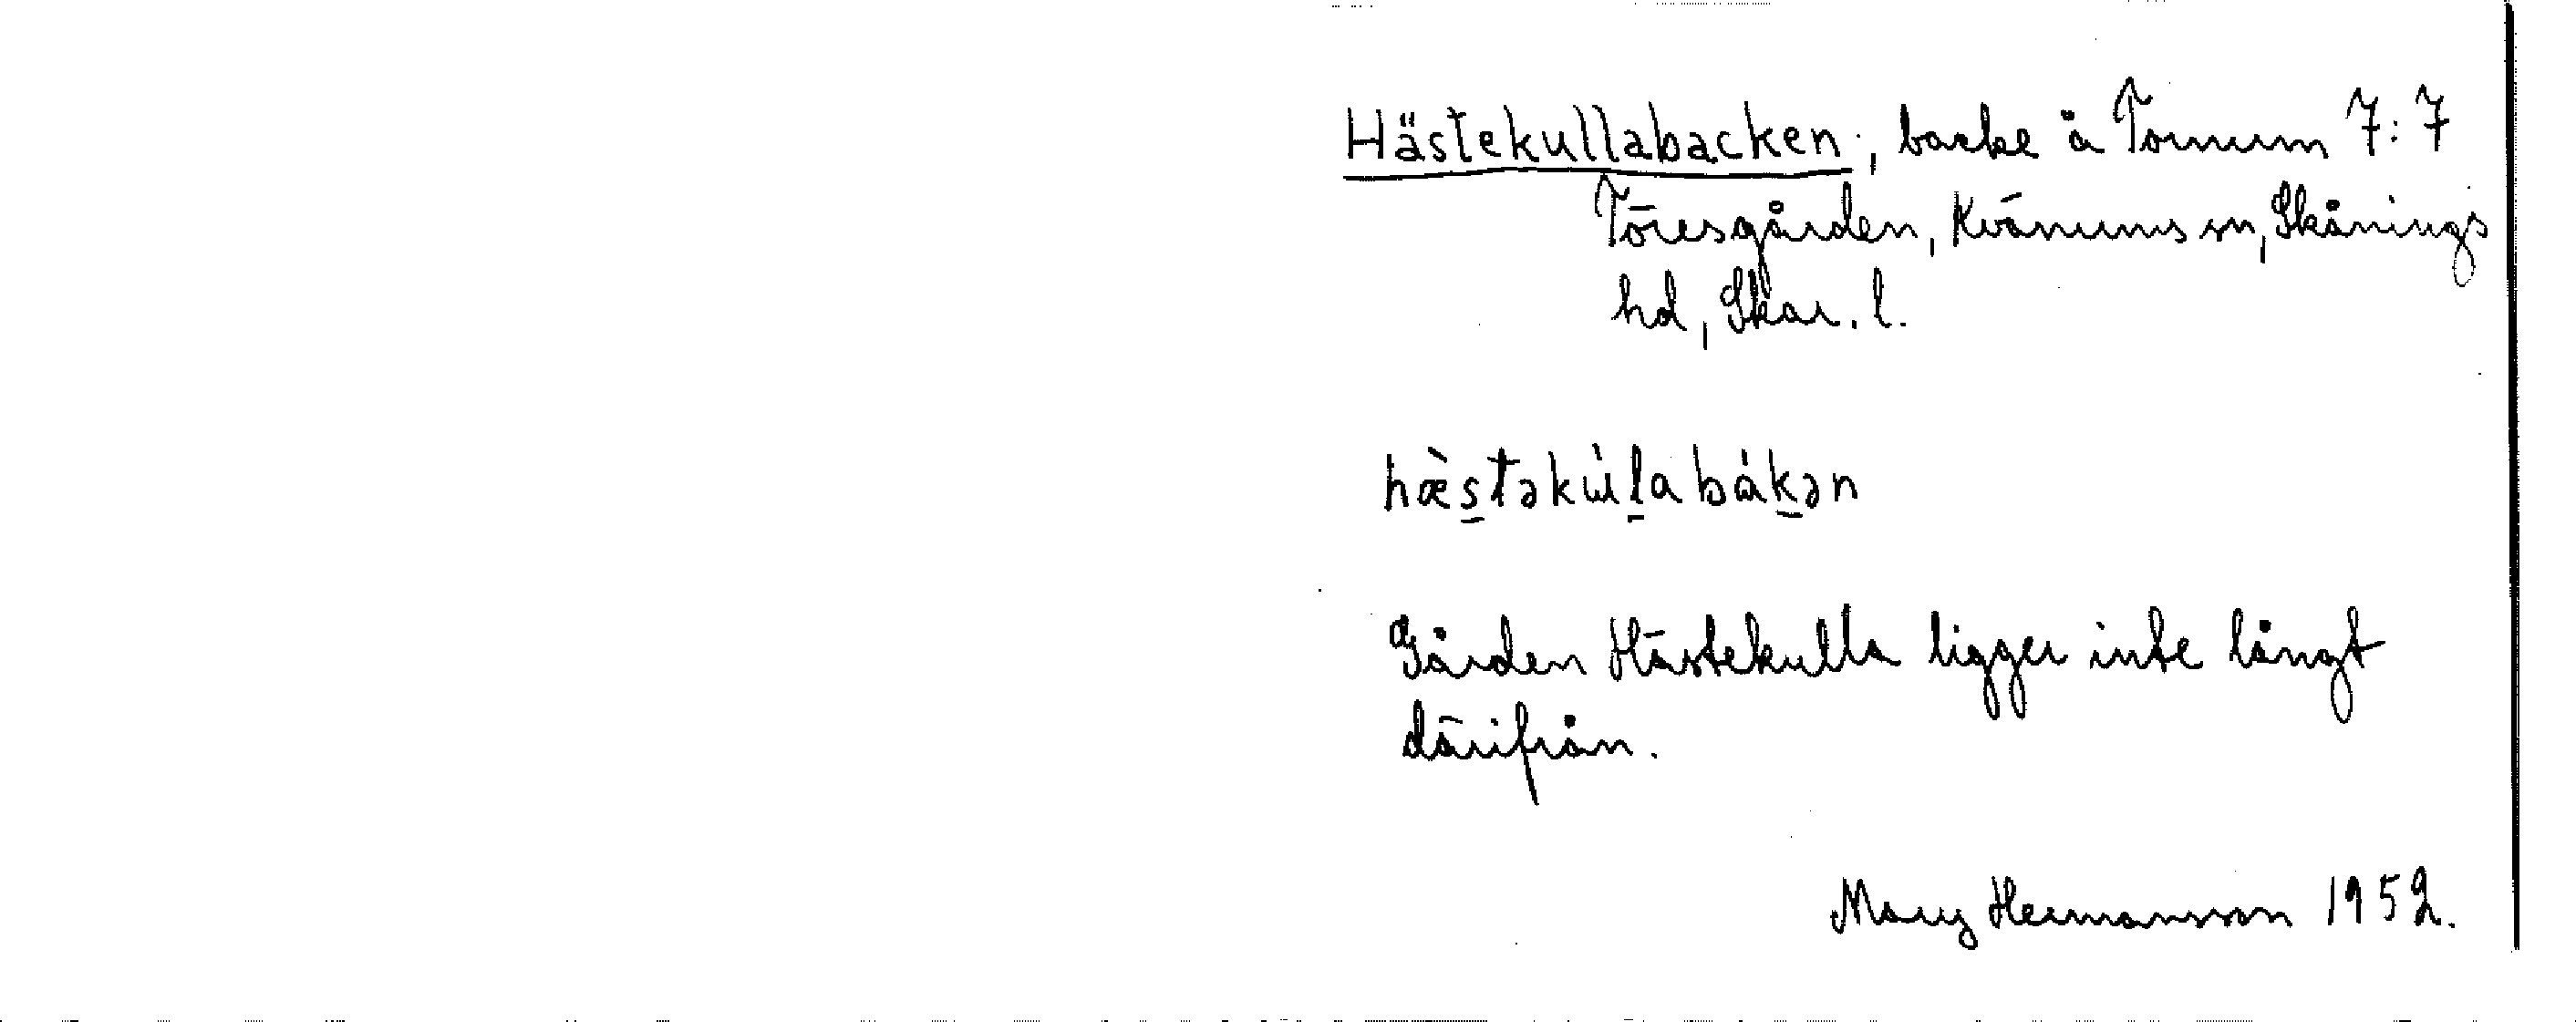 Hästekullabacken, backe å Tornum 7:7
Töresgården, Kvänums sn, Skånings
hd, Skar. l.
hæ̀s̱təkùḻabàḵən
Gården Hästekulla ligger inte långt
därifrån.
Mary Hermansson 1952.